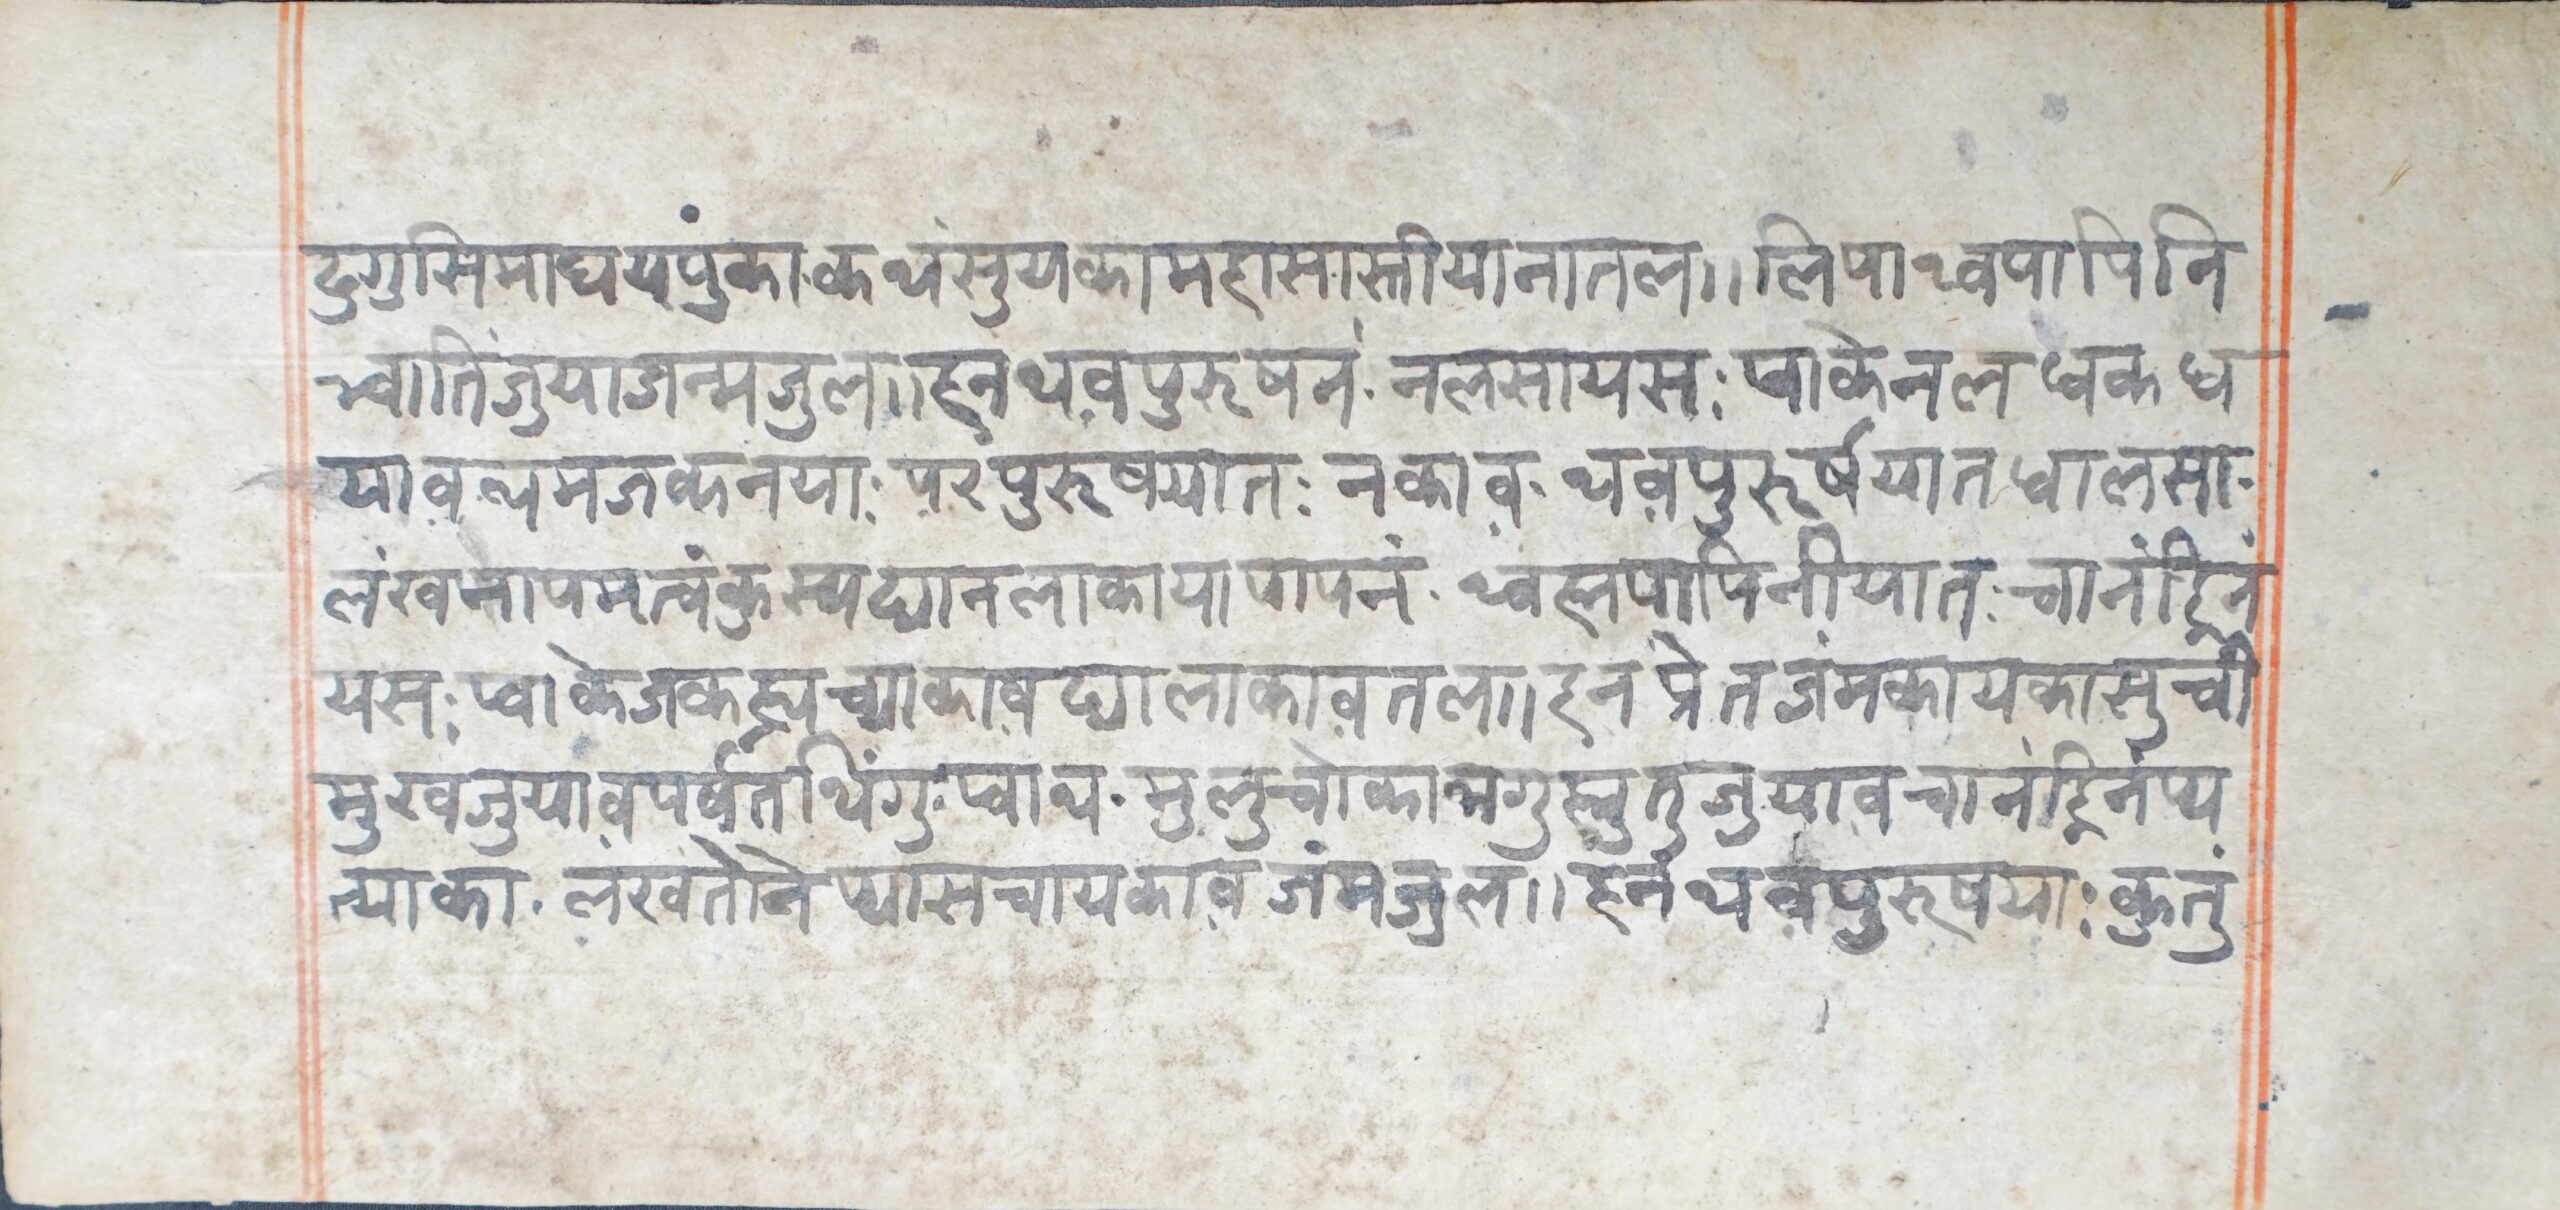 दुगुसिमाघयपुंका·कथंसुयकामहासास्तीयानातल॥लिपाथ्वपापिनि
च्वातिंजुयाजन्मजुल॥हनंथवपुरूषनं·नलसायसः प्वाकेनलध्वकध
यावव्यमजकनयाः परपुरूषयातः नकाव·थवपुरूर्षयातधालसा·
लंखनापमत्वंकुस्यद्यानलाकायापापनं·थ्वह्मपापिनीयातः चानंह्निनं
यसः प्वाकेजकह्यच्याकावद्यालाकावतल॥हनं प्रेतजंमकायकासुची
मुखजुयावपर्वतथिंगु·प्वाथ·मुलुचोकाभगुह्मुतुजुयावचानंह्निनंप्य
त्याका·लंखतेनेप्यासचायकावजंमजुल॥हनंथवपुरूषयाः कुतुं